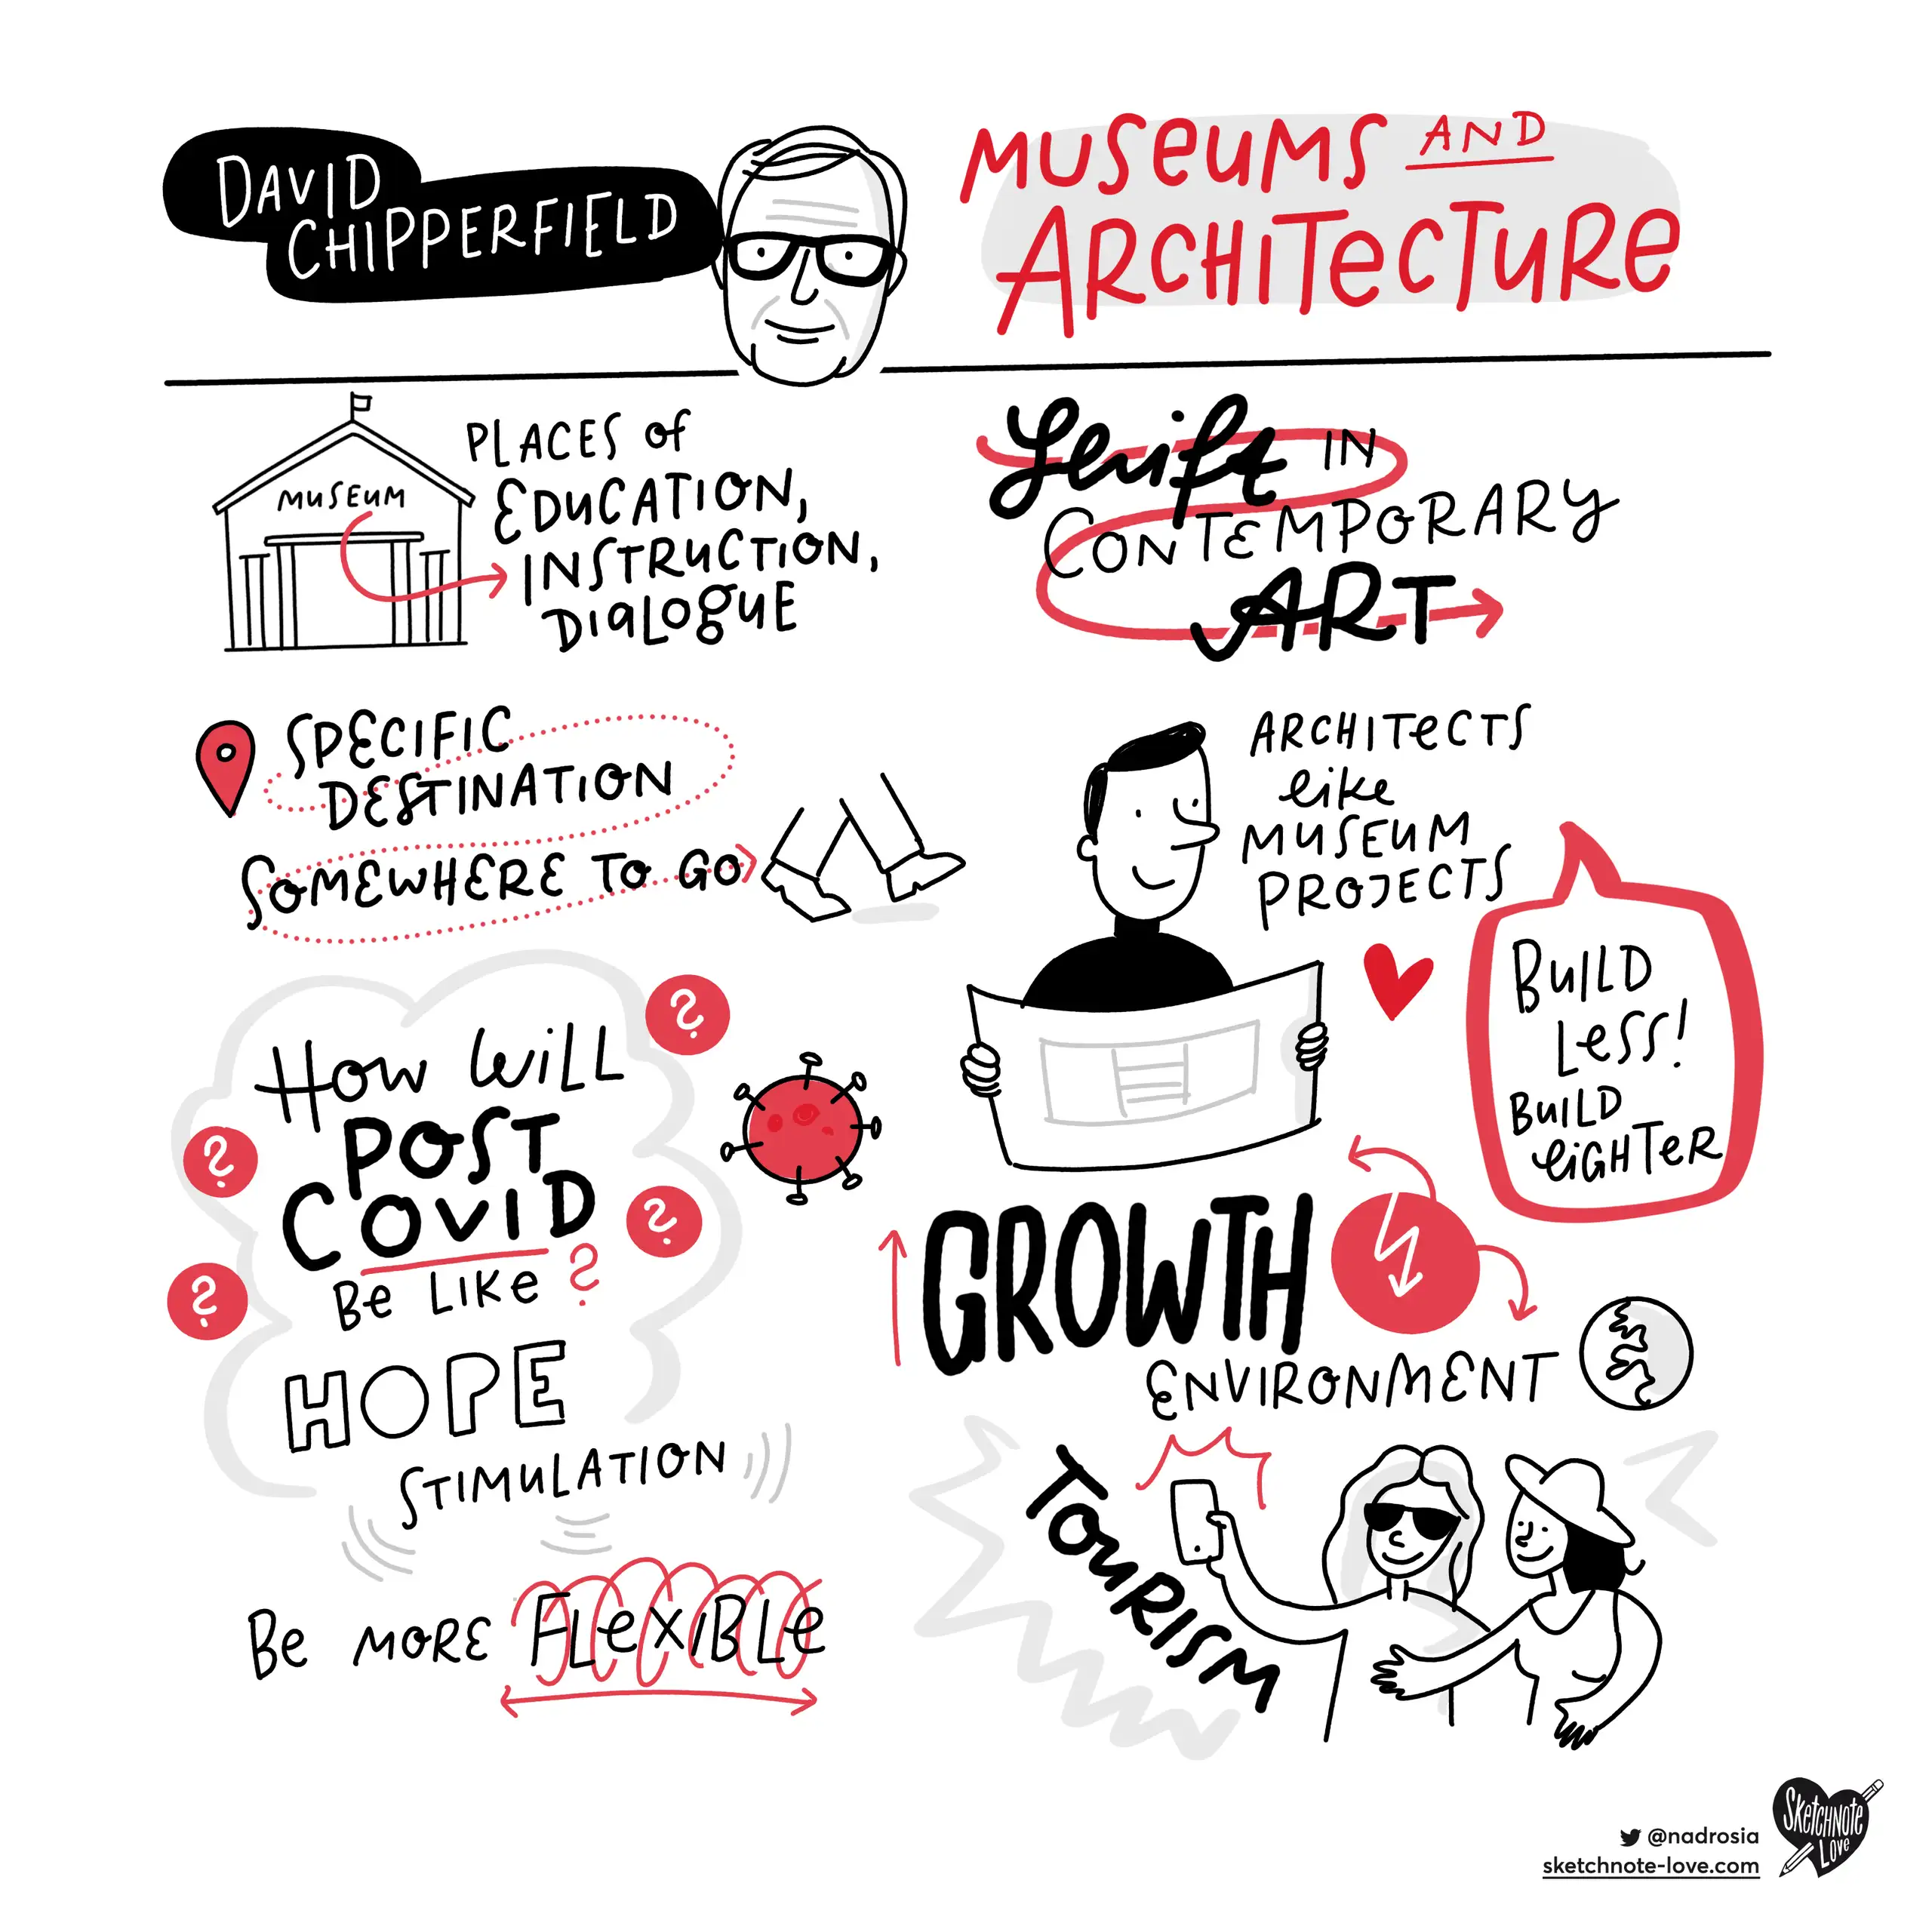 DAVID
CHIPPERFIELD
MUSEUMS AND
ARCHITECTURE
MUSEUM
PLACES of
EDUCATION,
INSTRUCTION,
DIALOGUE
Shift IN
CONTEMPORARY
ART
SPECIFIC
DESTINATION
SOMEWHERE TO GO
ARCHITECTS
like
MUSEUM
PROJECTS
BUILD
LESS!
BUILD
LIGHTER
HOW WILL
POST
COVID
BE LIKE?
?
?
?
?
HOPE
STIMULATION
BE MORE FLEXIBLE
GROWTH
ENVIRONMENT
TOURISM
@nadrosia
sketchnote-love.com
SKETCHNOTE
LOVE